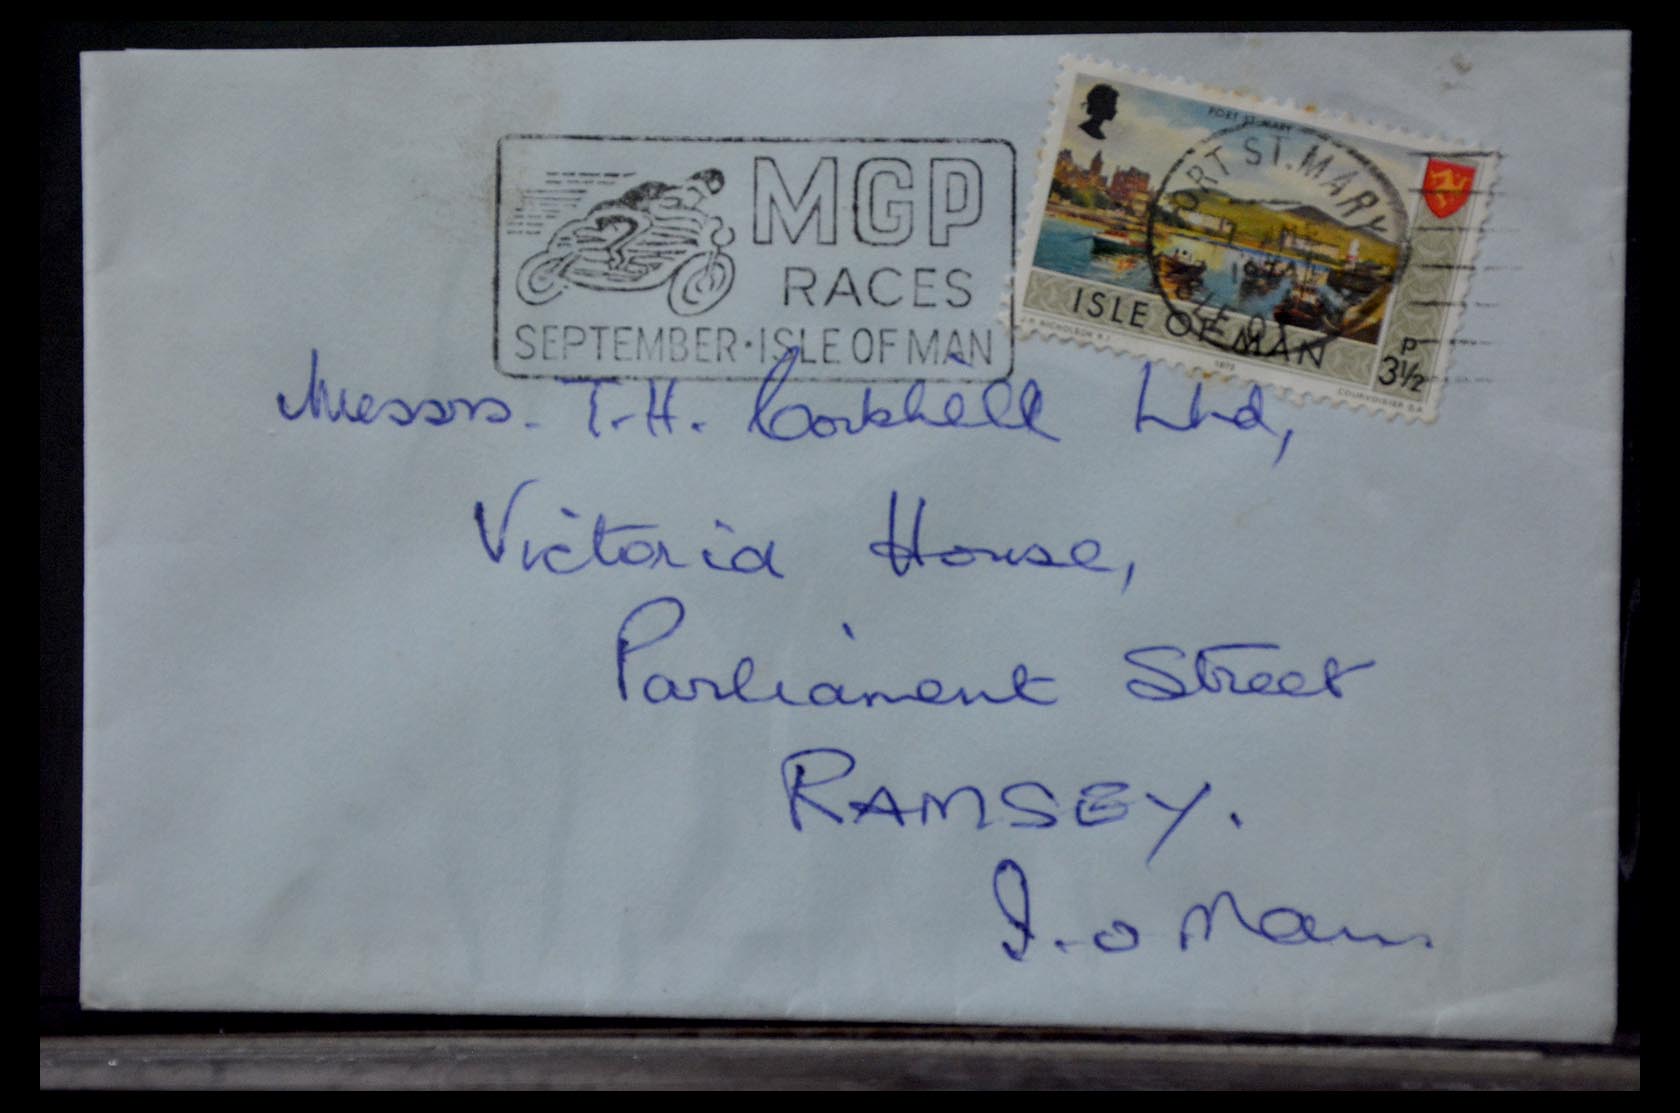 MGP
RACES
SEPTEMBER · ISLE OF MAN
PORT ST. MARY
PORT ST. MARY
ISLE OF MAN
P
3½
1973
COURVOISIER S.A.
Messrs. T.H. Corkhill Ltd,
Victoria House,
Parliament Street
RAMSEY.
I.o Man.